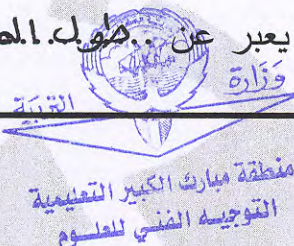 يعبر عن .. طول
وزارة
التربية
منطقة مبارك الكبير التعليمية
التوجيه الفني للعلوم